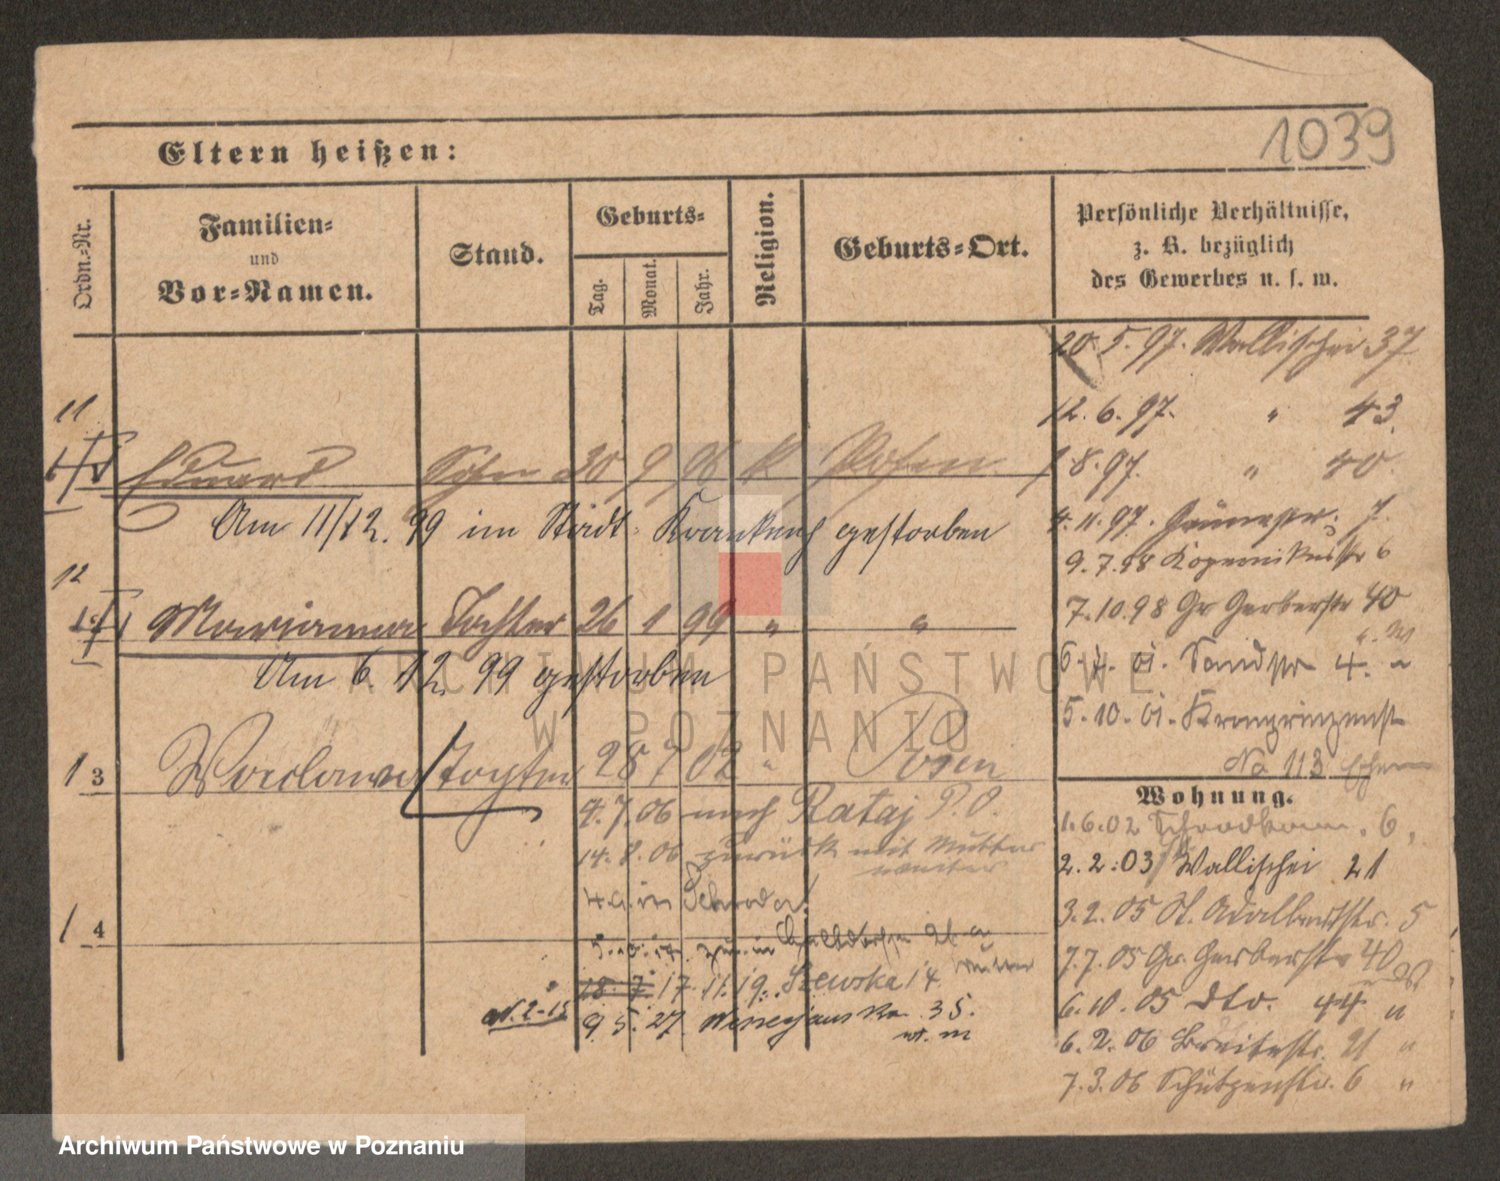 1039
Eltern heißen:
Ordn.-Nr.
Familien-
und
Vor-Namen.
Stand.
Geburts-
Tag.
Monat.
Jahr.
Religion.
Geburts-Ort.
Persönliche Verhältnisse,
z. B. bezüglich
des Gewerbes u. s. w.
20. 5. 97. Wallischei 37
11
12. 6. 97. " 43
Eduard Sohn 30 9 98 K Posen
1 8. 97. " 40
Am 11/12. 99 im Städt. Krankenh gestorben
4. 11. 97. 7
9. 7. 98 Kopernikusstr 6
12
7. 10. 98 Gr Gerberstr 40
Marianna Tochter 26 1 99 " "
Am 6. 12. 99 gestorben
01. Sandstr 4.
5. 10. 01. Kronprinzenst
No 113
1 3 Waclawa Tochter 28 7 02 " Posen
Wohnung.
4. 7. 06 nach Rataj P. O.
1. 6. 02 6.
14. 8. 06 zurück mit Mutter
2. 2. 03 Wallischei 21
in Schroda
3. 2. 05 St. Adalbertstr. 5
1 4
7. 7. 05 Gr. Gerberstr 40
Mutter
18. 7. 17. 11. 19. Szewska 14
6. 10. 05 dto. 44 "
9. 5. 27 35.
6. 2. 06 Breitestr. 21 "
7. 3. 06 Schützenstr. 6 "
ARCHIWUM PAŃSTWOWE
W POZNANIU
Archiwum Państwowe w Poznaniu